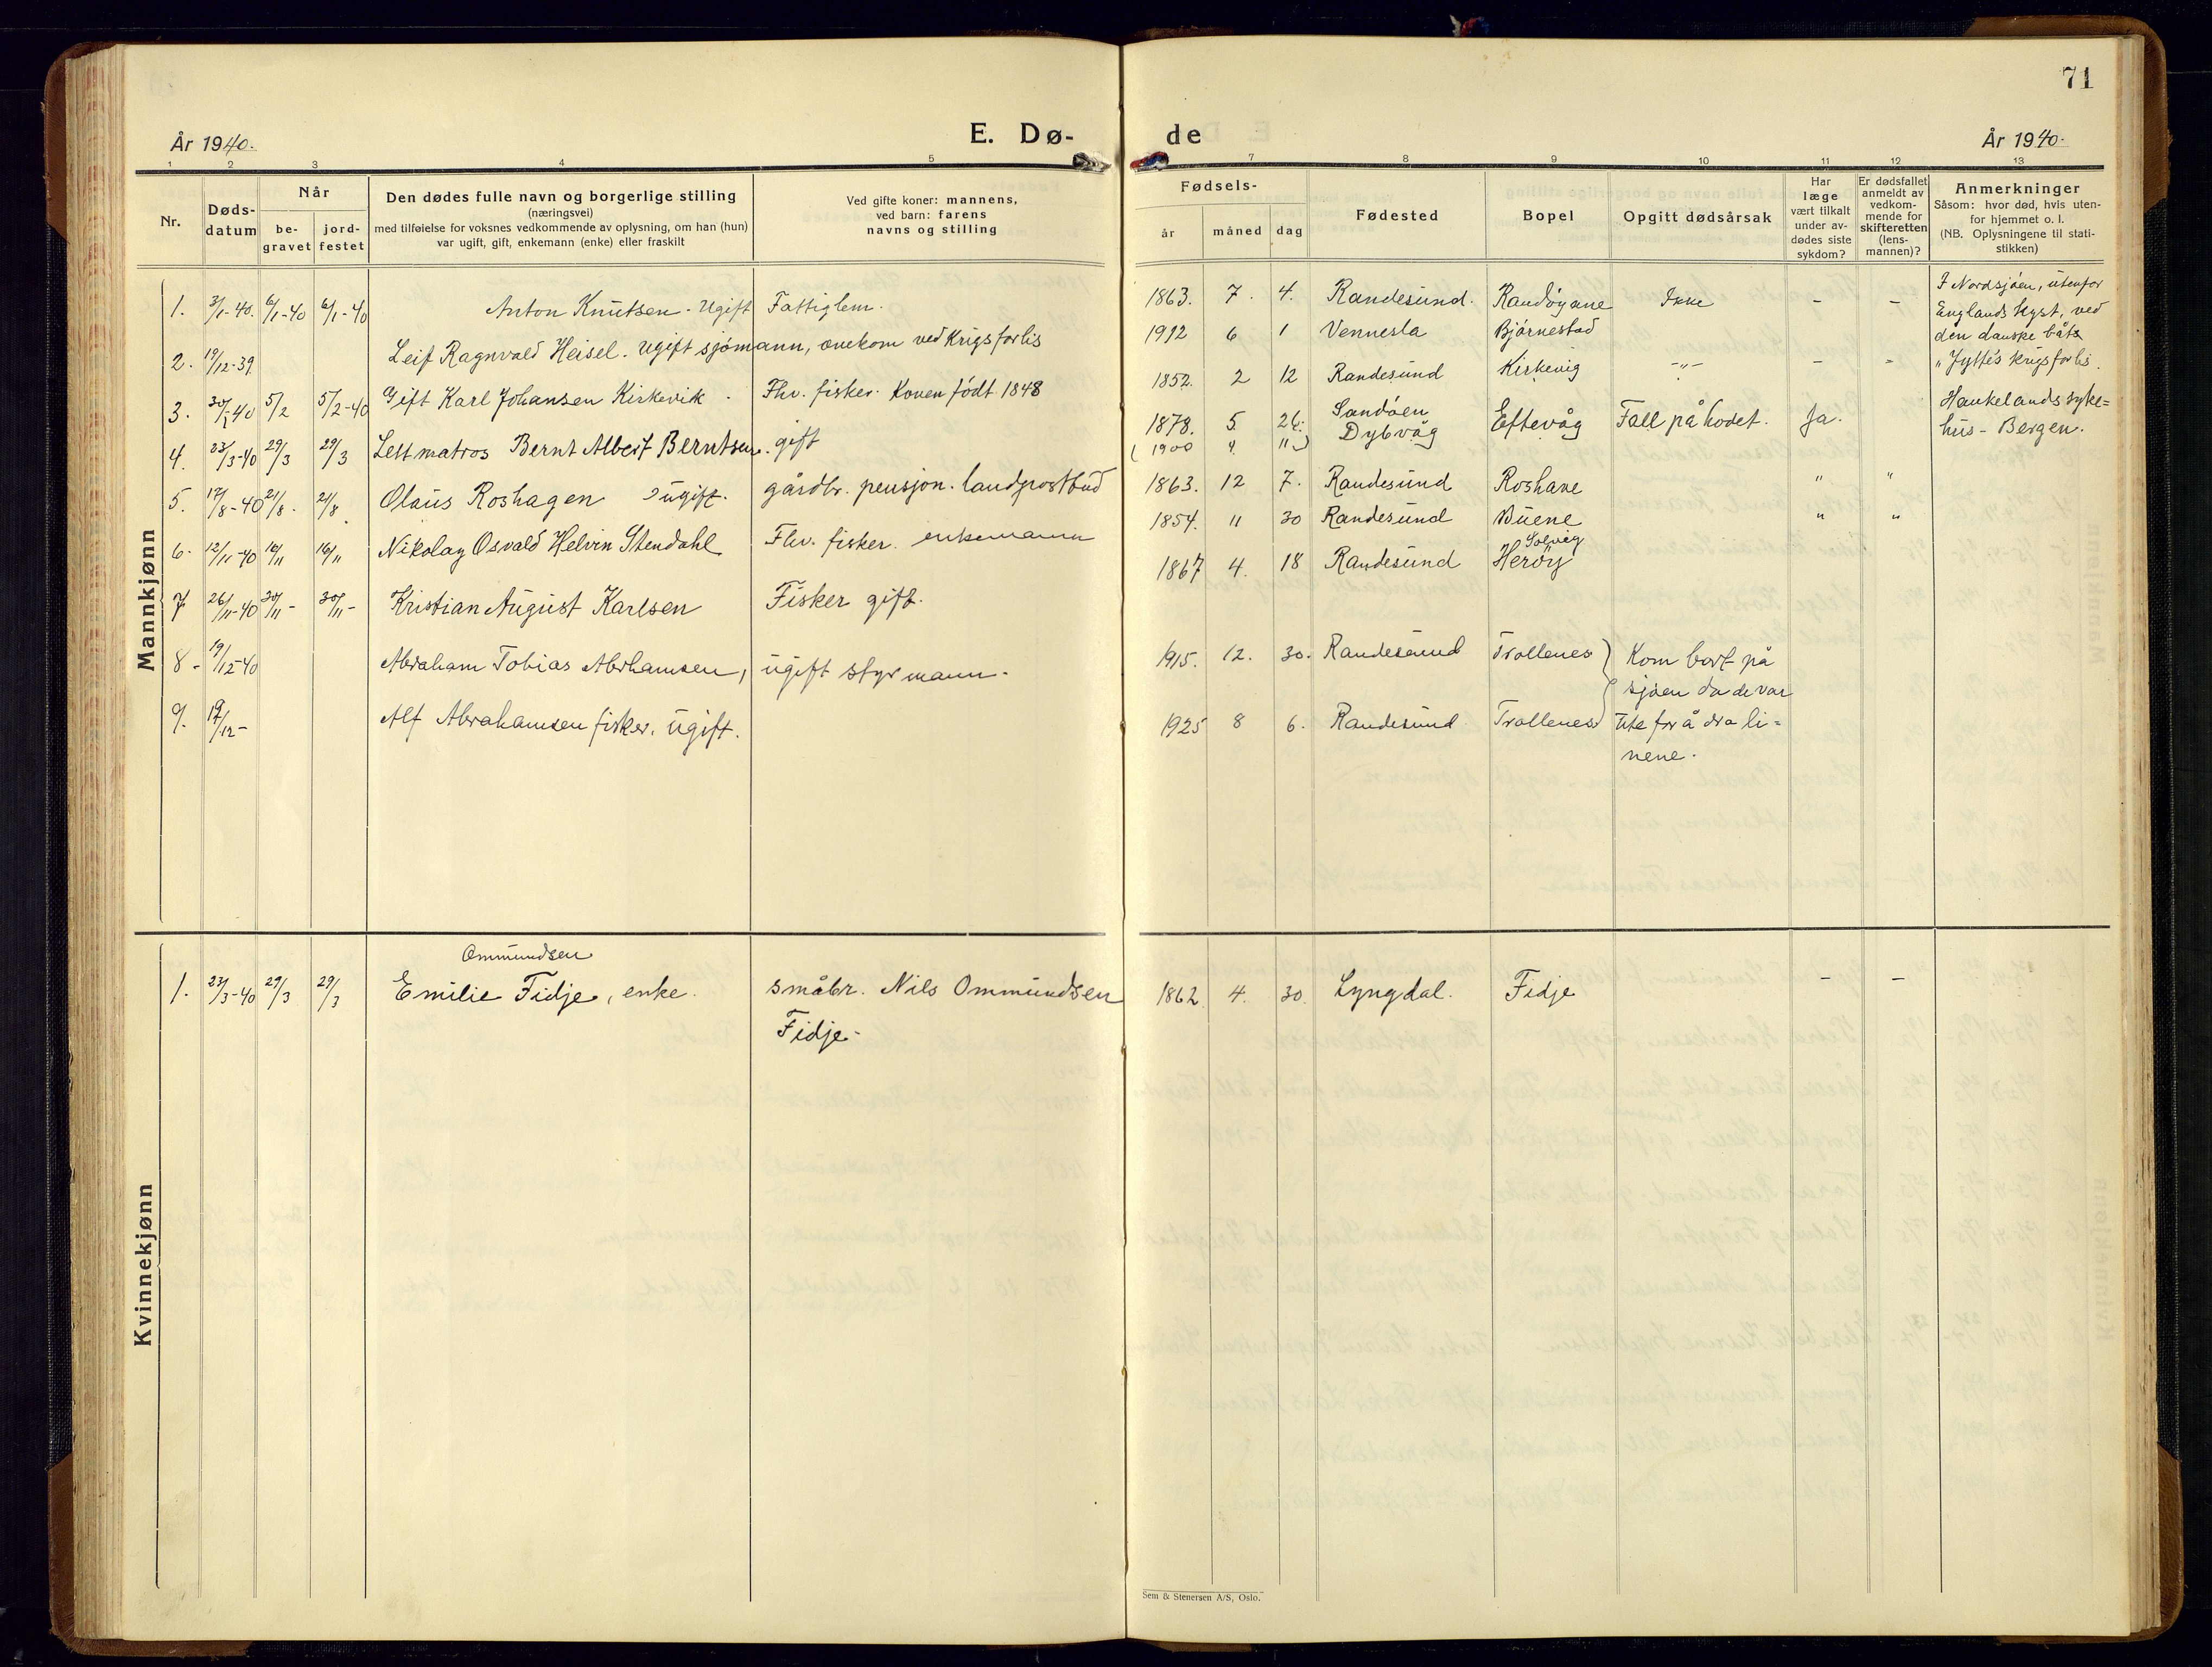 71
År 1940.
E. Dø-
de
År 1940.
1 2 3 4 5 7 8 9 10 11 12 13
Nr.
Døds-
datum
Når
be-
gravet
jord-
festet
Den dødes fulle navn og borgerlige stilling
(næringsvei)
med tilføielse for voksnes vedkommende av oplysning, om han (hun)
var ugift, gift, enkemann (enke) eller fraskilt
Ved gifte koner: mannens,
ved barn: farens
navns og stilling
Fødsels-
år
måned
dag
Fødested
Bopel
Opgitt dødsårsak
Har
læge
vært tilkalt
under av-
dødes siste
sykdom?
Er dødsfallet
anmeldt av
vedkom-
mende for
skifteretten
(lens-
mannen)?
Anmerkninger
Såsom: hvor død, hvis uten-
for hjemmet o. l.
(NB. Oplysningene til stati-
stikken)
Mannkjønn
1. 3/1-40. 6/1-40 6/1-40 Anton Knutsen. Ugift Fattiglem. 1863. 7. 4. Randesund. Randøyane Ikke - -
I Nordsjøen, utenfor
Englands kyst, ved
den danske båts
"Jyttes krigsforlis.
2. 19/12-39 Leif Ragnvald Heisel. Ugift sjømann, omkom ved Krigsforlis 1912 6 1 Vennesla Bjørnestad
3. 30/1-40 5/2 5/2-40 Gift Karl Johansen Kirkevik. Fhv. fisker. Konen født 1848 1852. 2 12 Randesund Kirkevig -"- - -
4. 23/3-40 29/3 29/3 Lettmatros Bernt Albert Berntsen. gift 1878. 5 26. Sandøen
Dybvåg Eftevåg Fall på hodet. Ja.
Haukelands syke=
hus - Bergen.
( 1900 4. 11)
5. 17/8-40 21/8. 21/8. Olaus Roshagen ugift. gårdbr. pensjon. landpostbud 1863. 12 7. Randesund Roshave " "
6. 12/11-40 16/11 16/11 Nikolay Osvald Helvin Stendahl Fhv. fisker. enkemann 1854. 11 30 Randesund Buene " "
Solvig
7 26/11-40 30/11- 30/11- Kristian August Karlsen Fisker gift. 1867 4. 18 Randesund Herøy
8- 19/12-40 Abraham Tobias Abrhamsen, ugift styrmann. 1915. 12. 30. Randesund Trollenes
9. 19/12- Alf Abrahamsen fisker. ugift. 1925 8 6. Randesund Trollenes
Kom bort på
sjøen da de var
ute for å dra li=
nene.
Kvinnekjønn
Ommundsen
1. 23/3-40 29/3 29/3 Emilie Fidje, enke. småbr. Nils Ommundsen 1862. 4. 30. Lyngdal. Fidje - -
Fidje-
Sem & Stenersen A/S, Oslo.